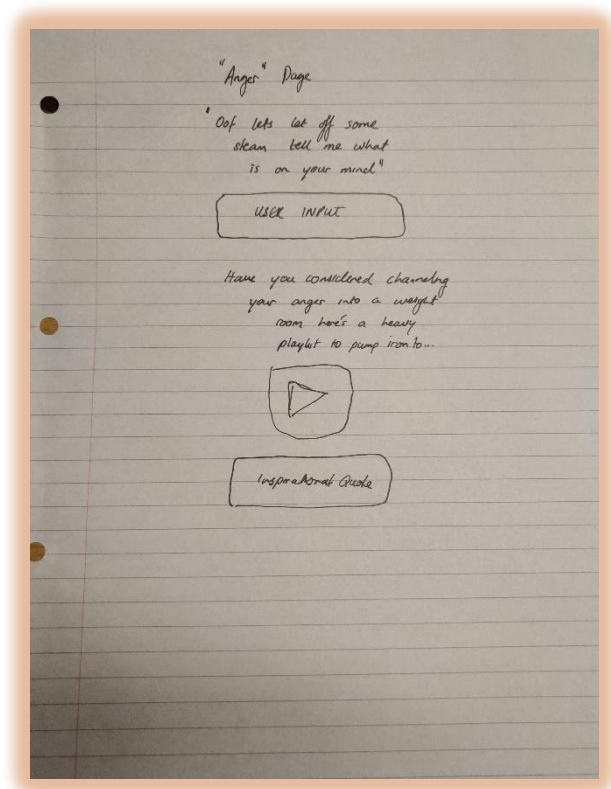 "Anger" Page
"Oof lets let off some
steam tell me what
is on your mind"
USER INPUT
Have you considered channeling
your anger into a weight
room here's a heavy
playlist to pump iron to...
Inspirational Quote